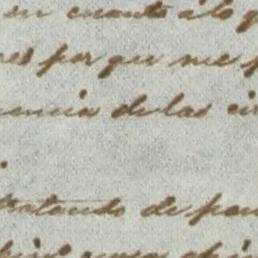 en cuanto á lo q
nes por que me p
uencia de las ci
tratando de pon